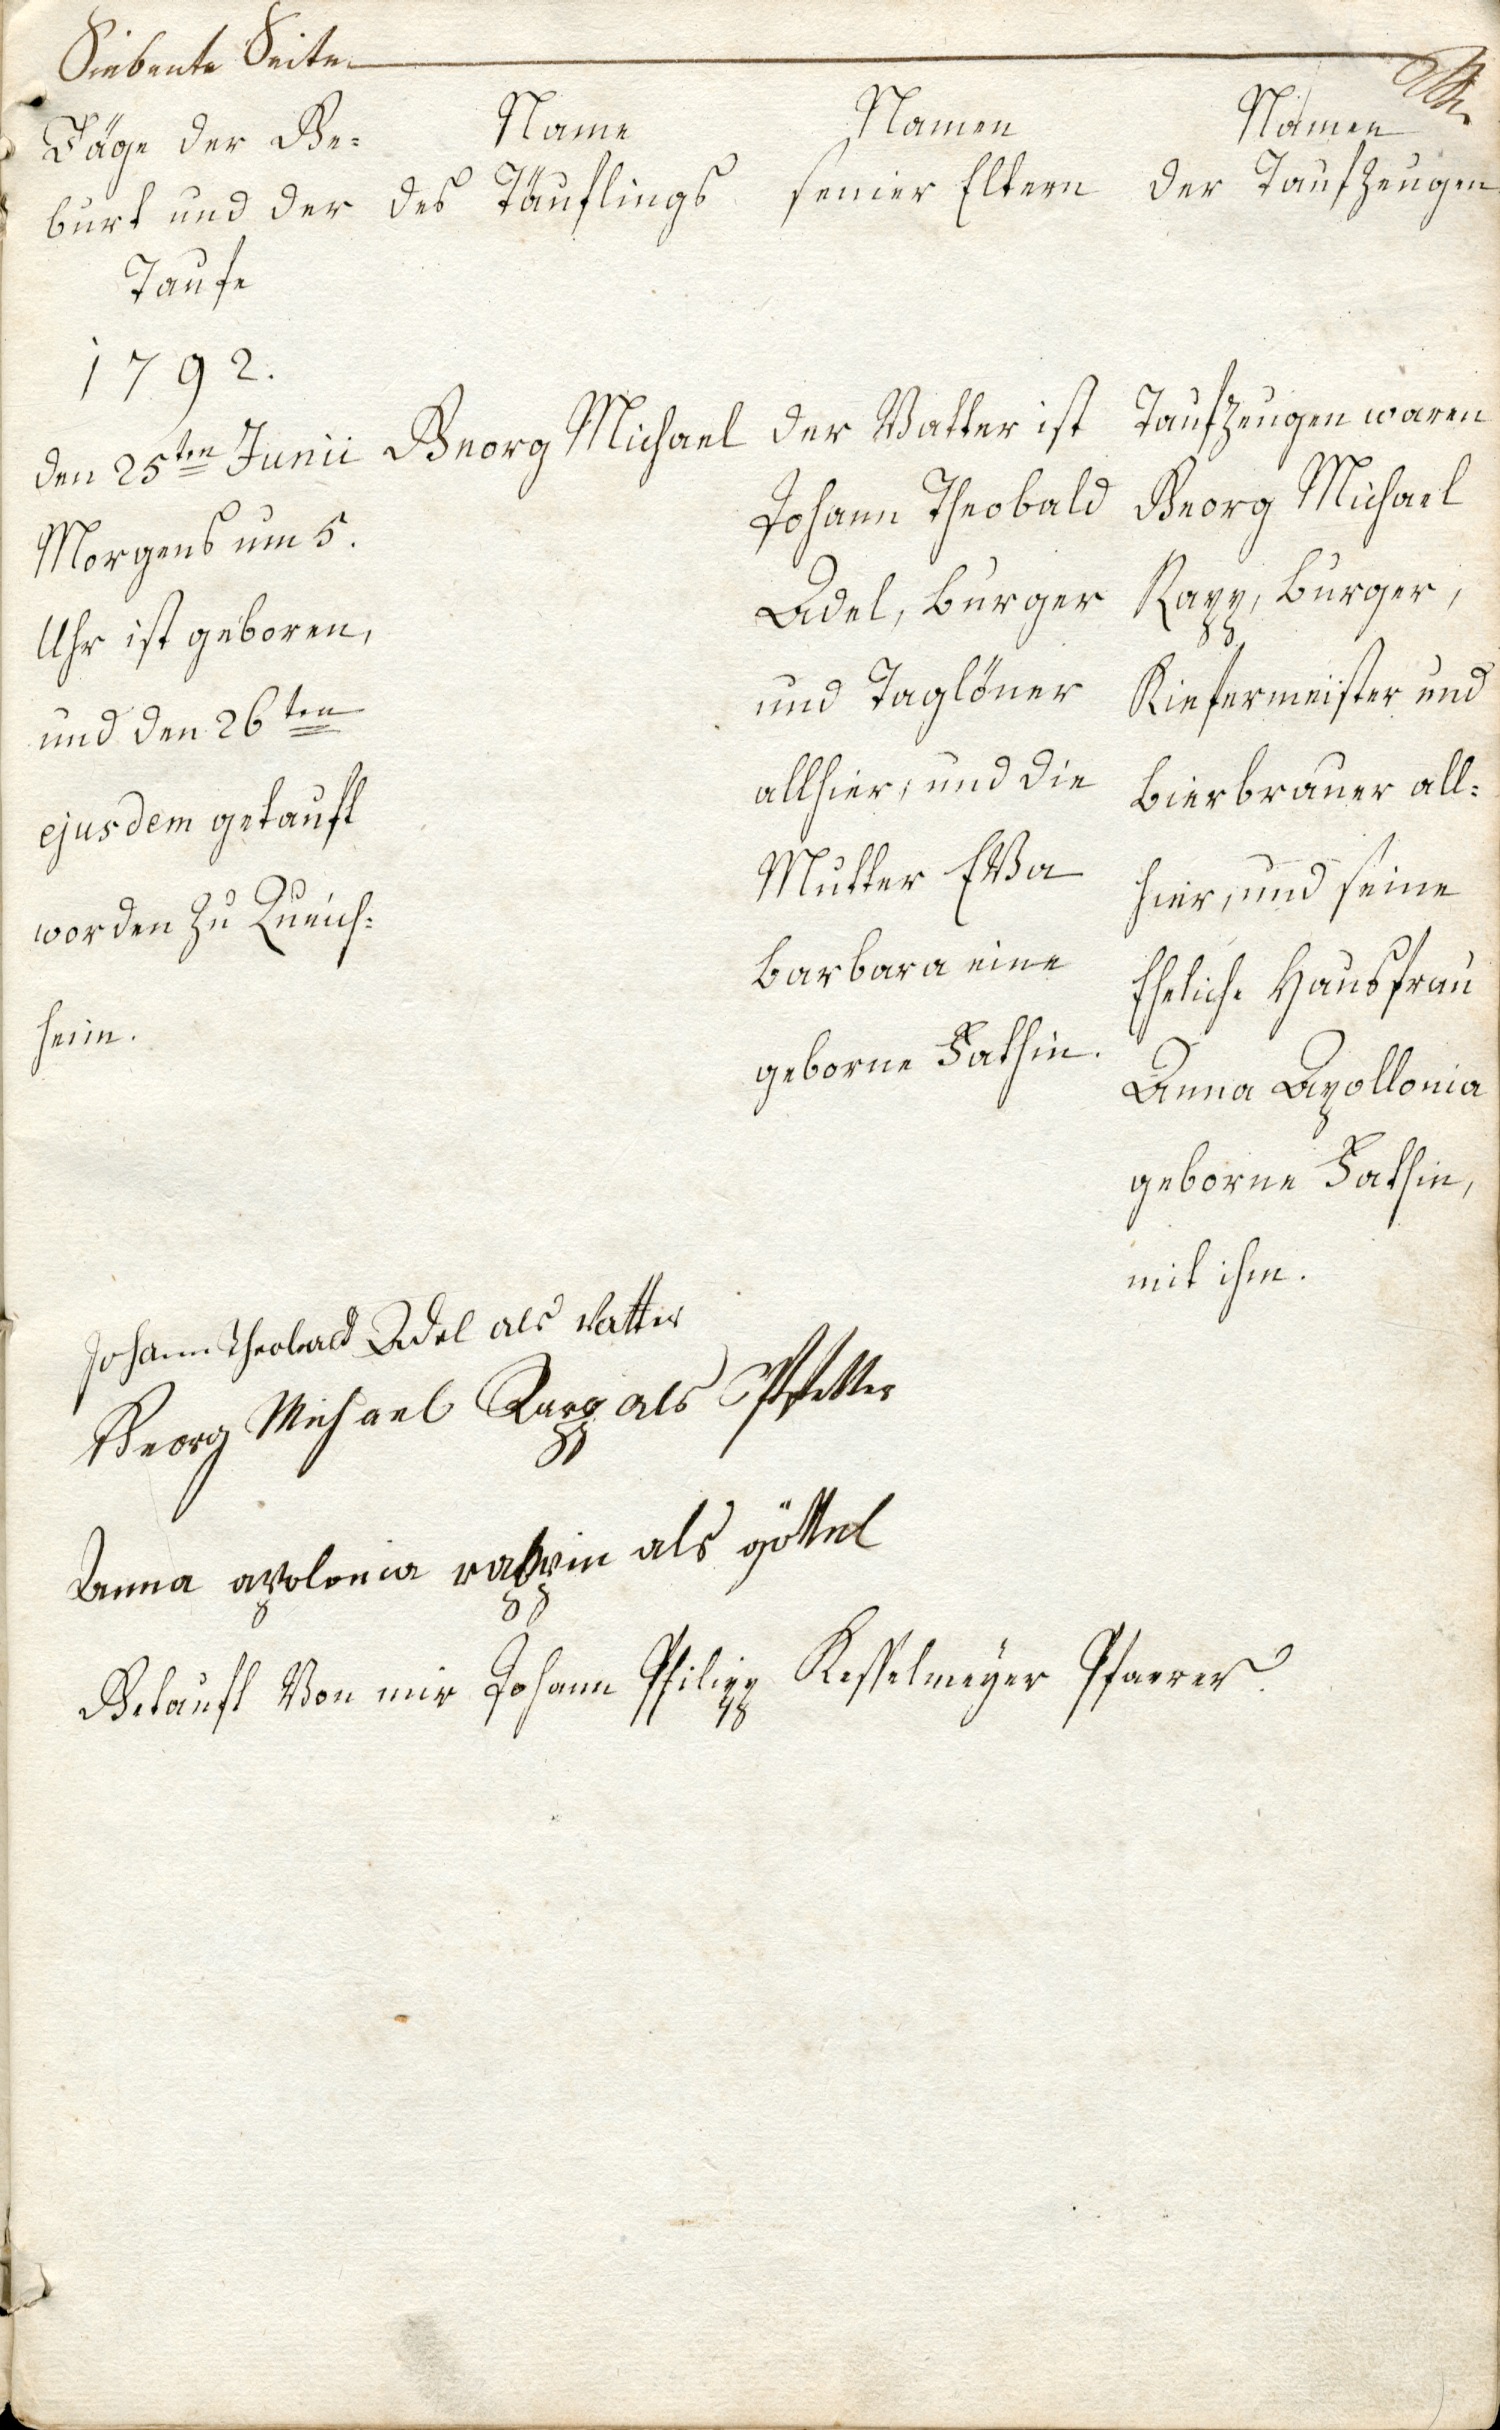 Siebente Seite
Täge der Ge-
burt und der
Taufe
Name
des Täuflings
Namen
seiner Eltern
Namen
der Taufzeugen
1792.
den 25ten Junii
Morgens um 5.
Uhr ist geboren,
und den 26ten
ejusdem getauft
worden zu Queich-
heim.
Georg Michael
der Vatter ist
Johann Theobald
Adel, burger
und Taglöner
allhier, und die
Mutter EVa
barbara eine
geborne Fathin.
Taufzeugen waren
Georg Michael
Rapp, burger,
Kiefermeister und
bierbrauer all-
hier, und seine
Eheliche Hausfrau
Anna Apollonia
geborne Fathin,
mit ihm.
Johann Theobald Adel als vatter
Georg Michael Rapp als Pfetter
Anna apolonia rappin als göttel
Getauft Von mir Johann Philipp Kesselmeÿer Pfarrer.